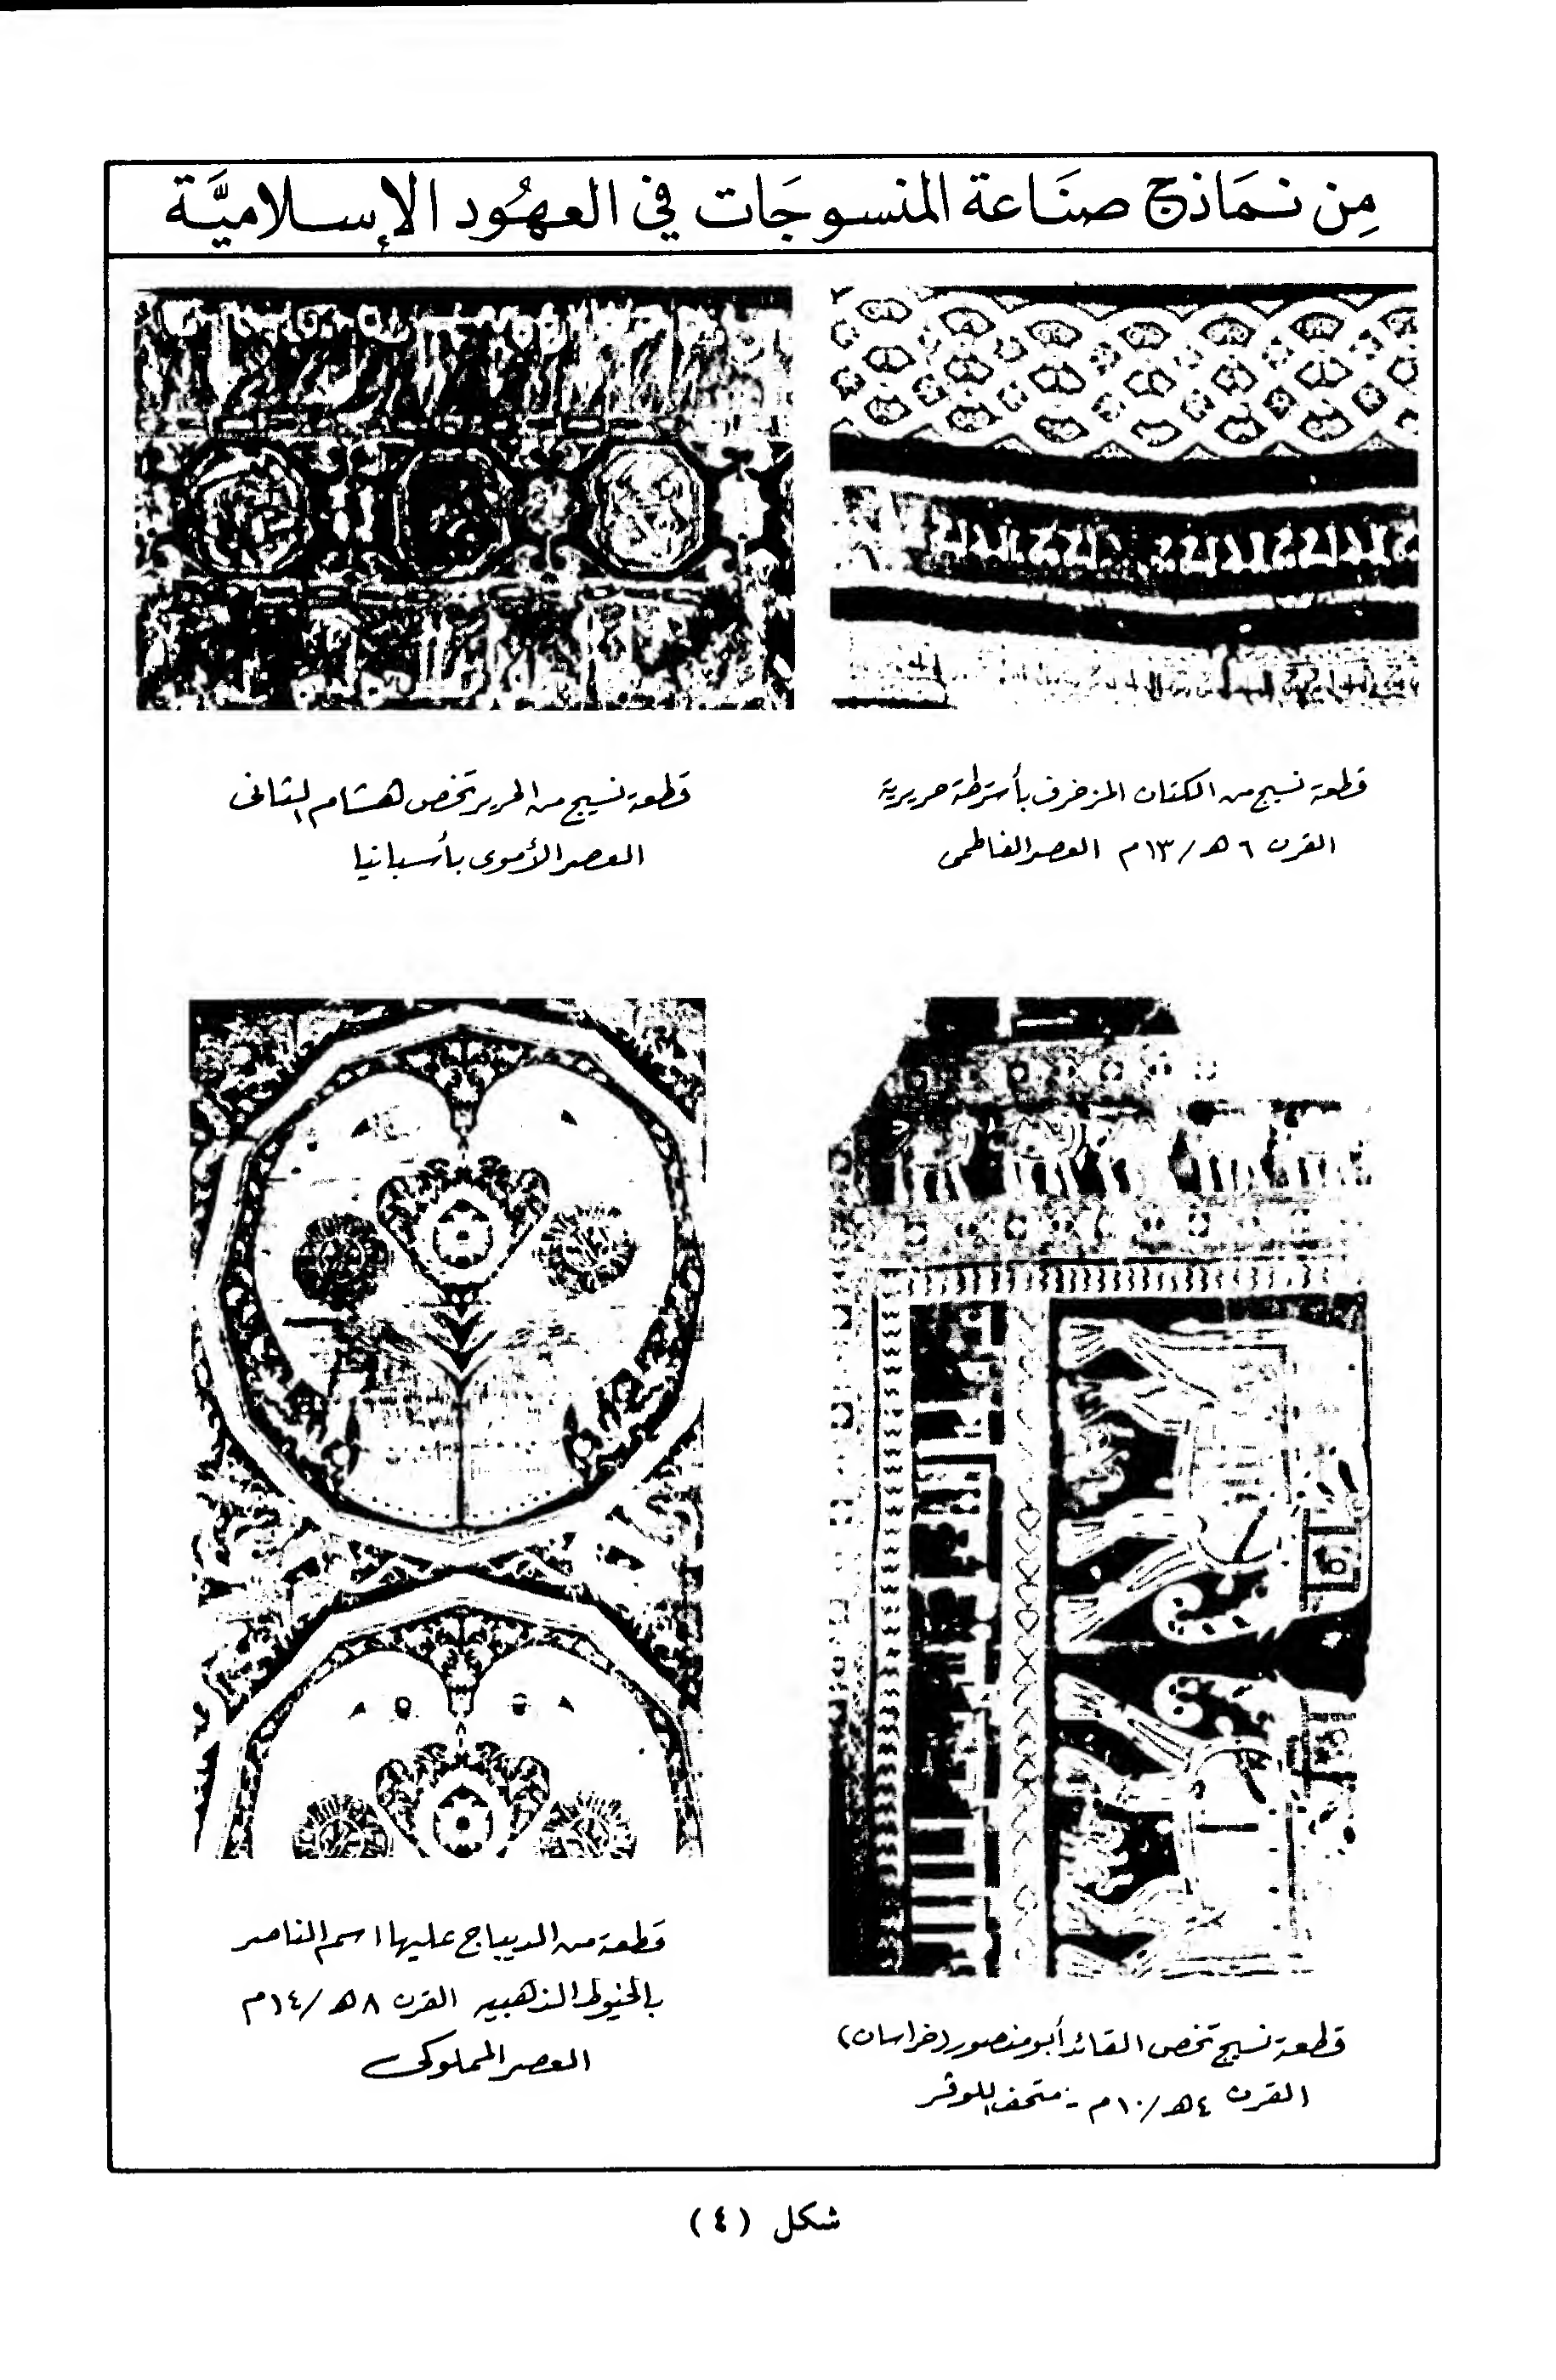 مِن نـمَاذج صنَـاعة المنسوجَات في العهُود الإسـلاميَّة
قطعة نسيج من الكتان المزخرف بأشرطة حريرية
القرن ٦ هـ / ١٣م العصر الفاطمى
قطعة نسيج من الحرير تخص هشام الثانى
العصر الأموى بأسبانيا
قطعة نسيج تخص القائد أبو منصور (خراسان)
القرن ٤هـ/١٠م - متحف اللوفر
قطعة من الديباج عليها اسم الناصر
بالخيوط الذهبيه القرن ٨هـ/١٤م
العصر المملوكى
شكل (٤)